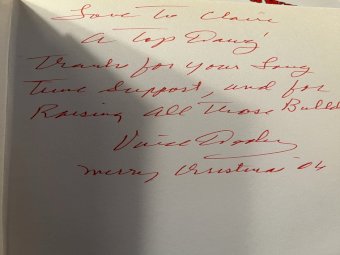 Love To Claire
A Top Dawg'
Thanks for your Long
Time Support, and for
Raising All Those Bulld
Vince Dooley
Merry Christmas '04